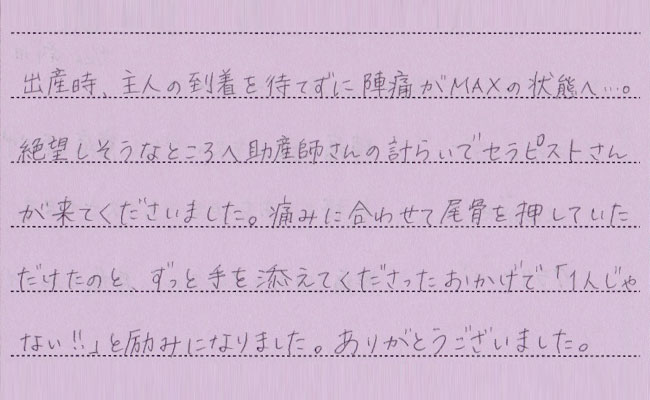 出産時、主人の到着を待てずに陣痛がMAXの状態へ…。
絶望しそうなところへ助産師さんの計らいでセラピストさん
が来てくださいました。痛みに合わせて尾骨を押していた
だけたのと、ずっと手を添えてくださったおかげで「1人じゃ
ない!!」と励みになりました。ありがとうございました。